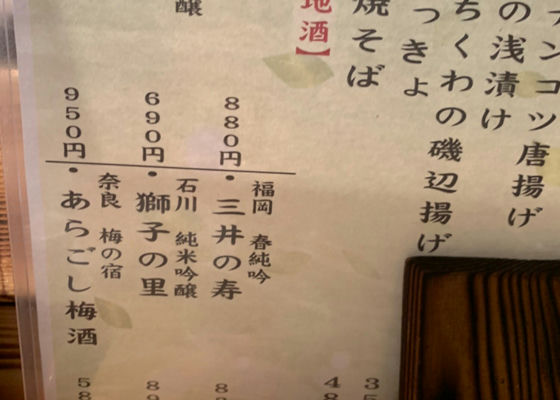 ンコツ唐揚げ
の浅漬け
ちくわの磯辺揚げ
っきょ
焼そば
地酒】
880円
・三井の寿
福岡 春純吟
690円
・獅子の里
石川 純米吟醸
醸
950円
・あらごし梅酒
奈良 梅の宿